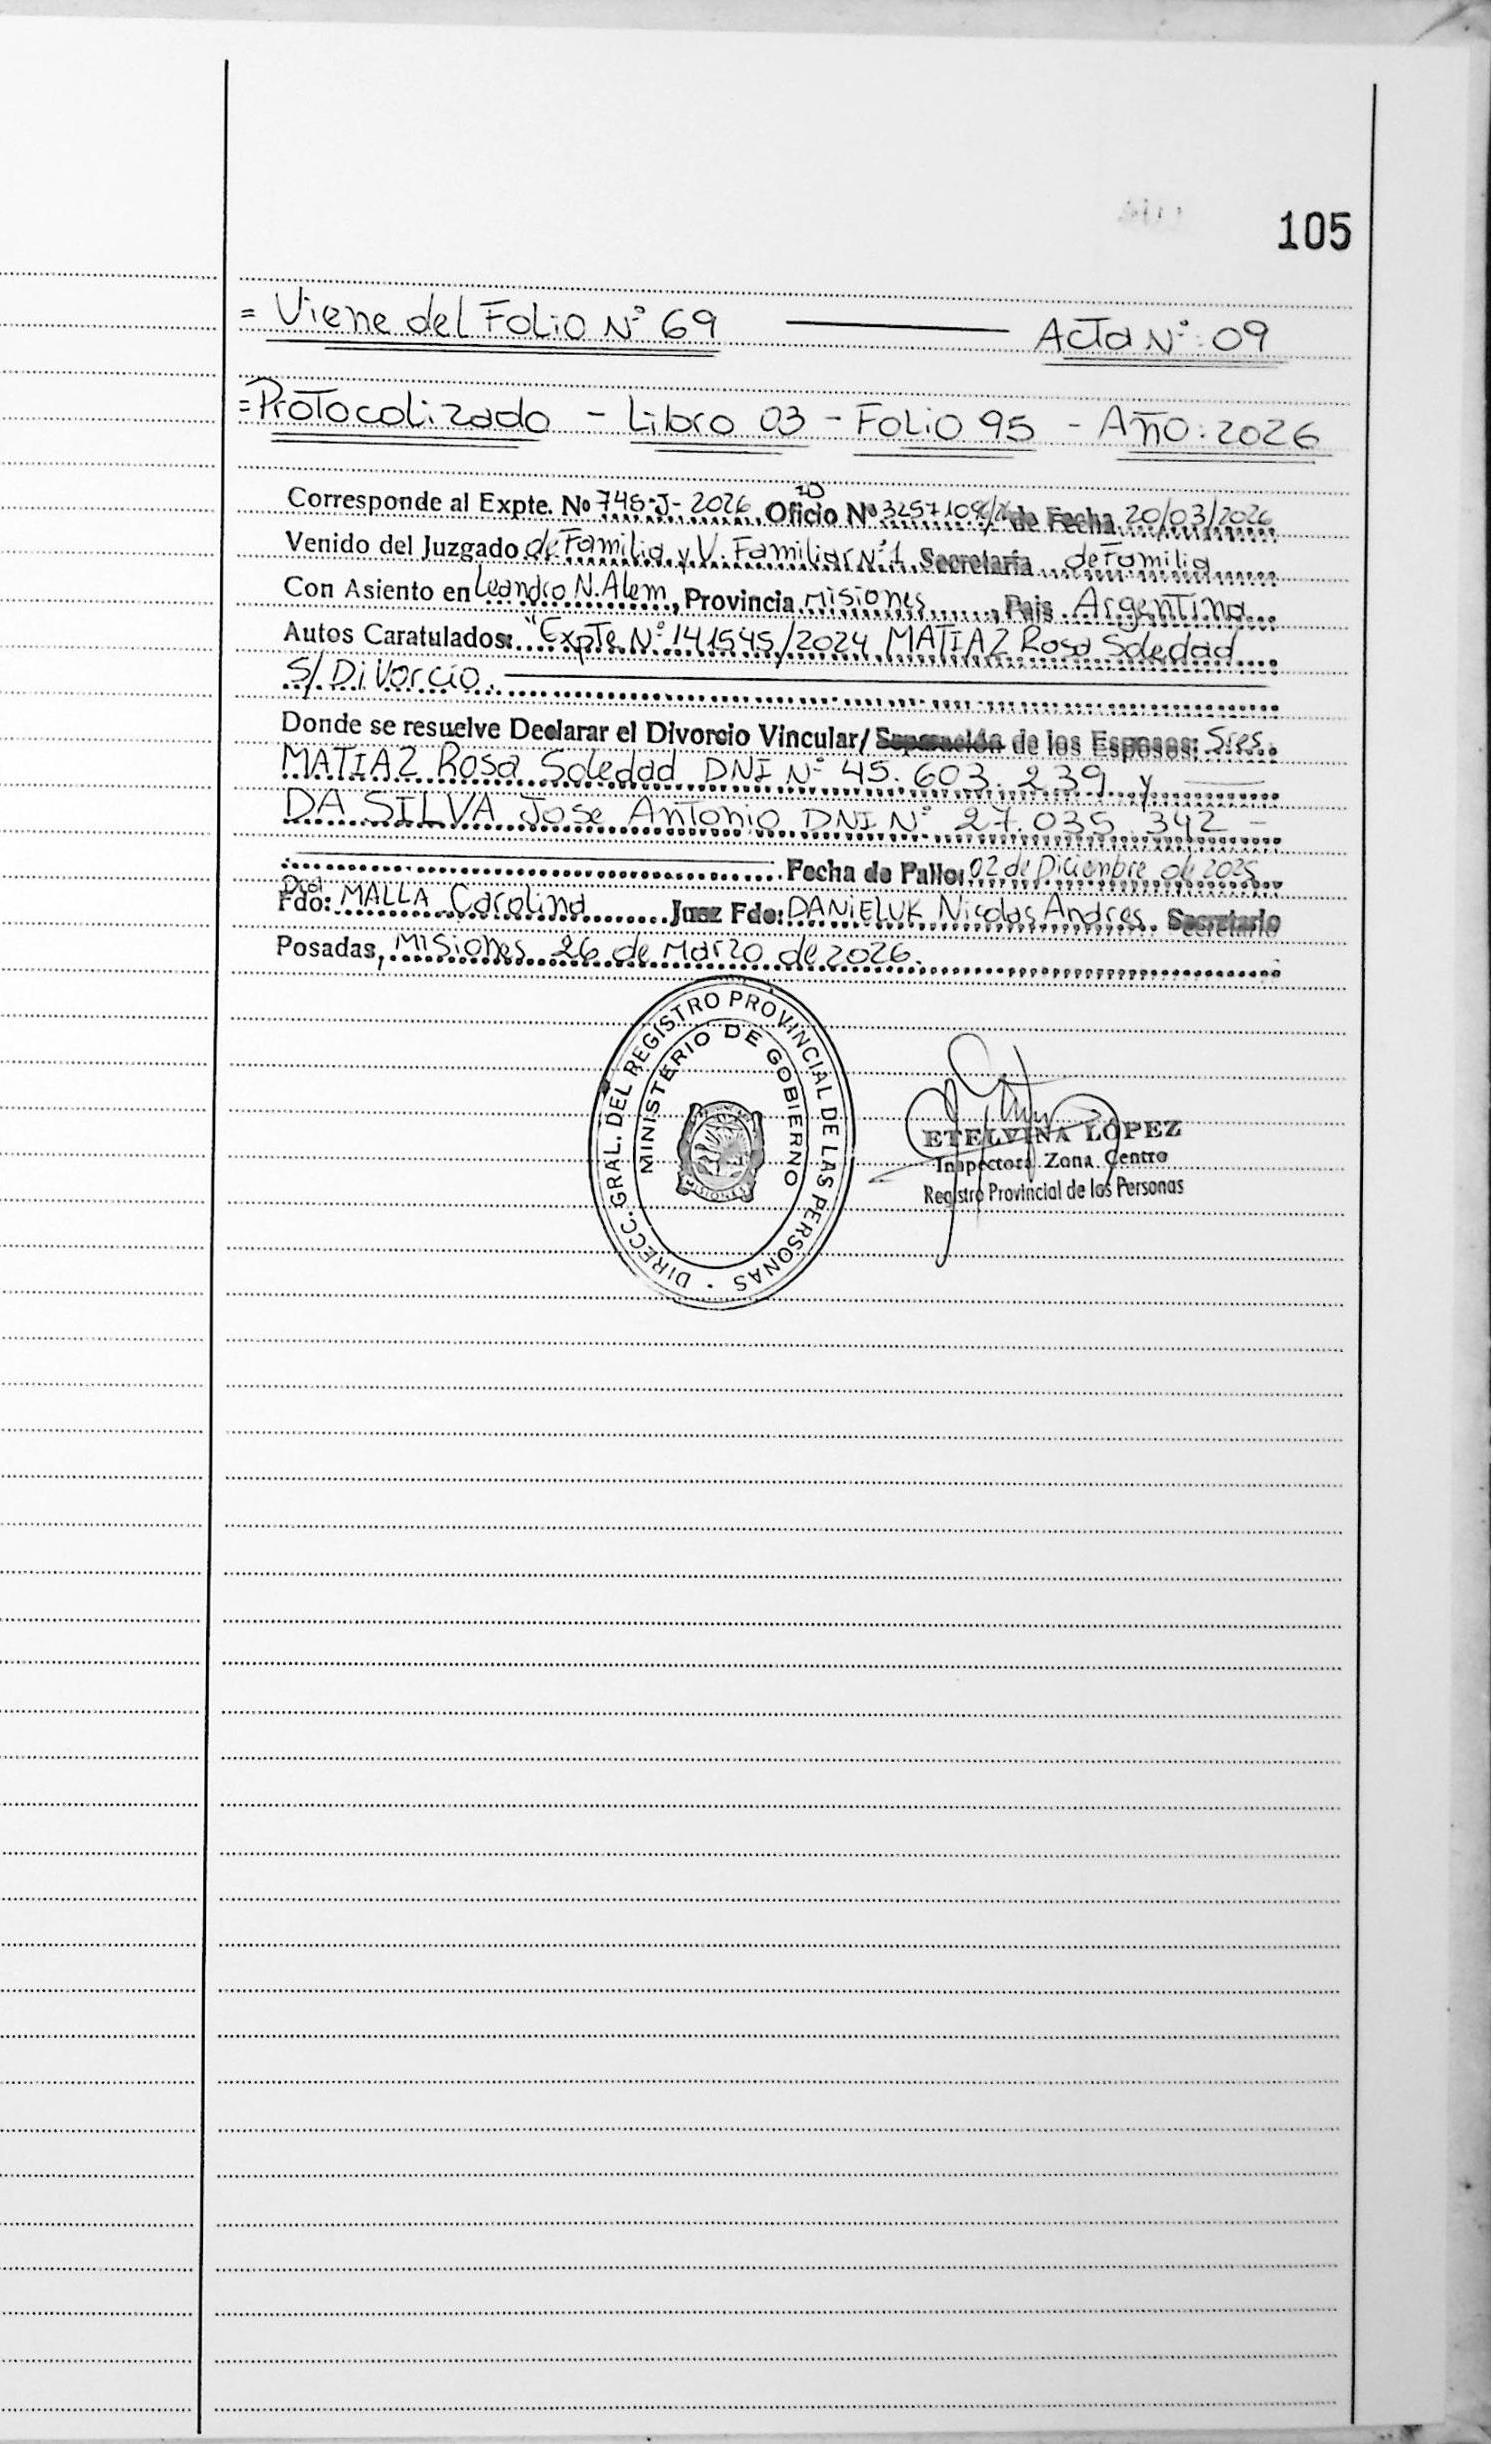 105
= Viene del Folio Nº 69 ——— Acta Nº: 09
= Protocolizado - Libro 03 - Folio 95 - Año: 2026
Corresponde al Expte. Nº 745-J- 2026 Oficio Nº de Fecha 20/03/2026
Venido del Juzgado de Familia y V. Familiar Nº 1 Secretaría de Familia
Con Asiento en Leandro N. Alem, Provincia Misiones, Pais Argentina
Autos Caratulados: "Expte. Nº 141545/2024 MATIAZ Rosa Soledad
S/ Divorcio.
Donde se resuelve Declarar el Divorcio Vincular/ Separación de los Esposos: Sres.
MATIAZ Rosa Soledad DNI Nº 45.603.239 y
DA SILVA Jose Antonio DNI Nº 27.035.342 -
Fecha de Fallo: 02 de Diciembre de 2025
Fdo: Dra. MALLA Carolina Juez Fdo: DANIELUK Nicolas Andres. Secretario
Posadas, Misiones 26 de Marzo de 2026.
DIRECC. GRAL. DEL REGISTRO PROVINCIAL DE LAS PERSONAS
MINISTERIO DE GOBIERNO
MISIONES
ETELVINA LÓPEZ
Inspectora Zona Centro
Registro Provincial de las Personas